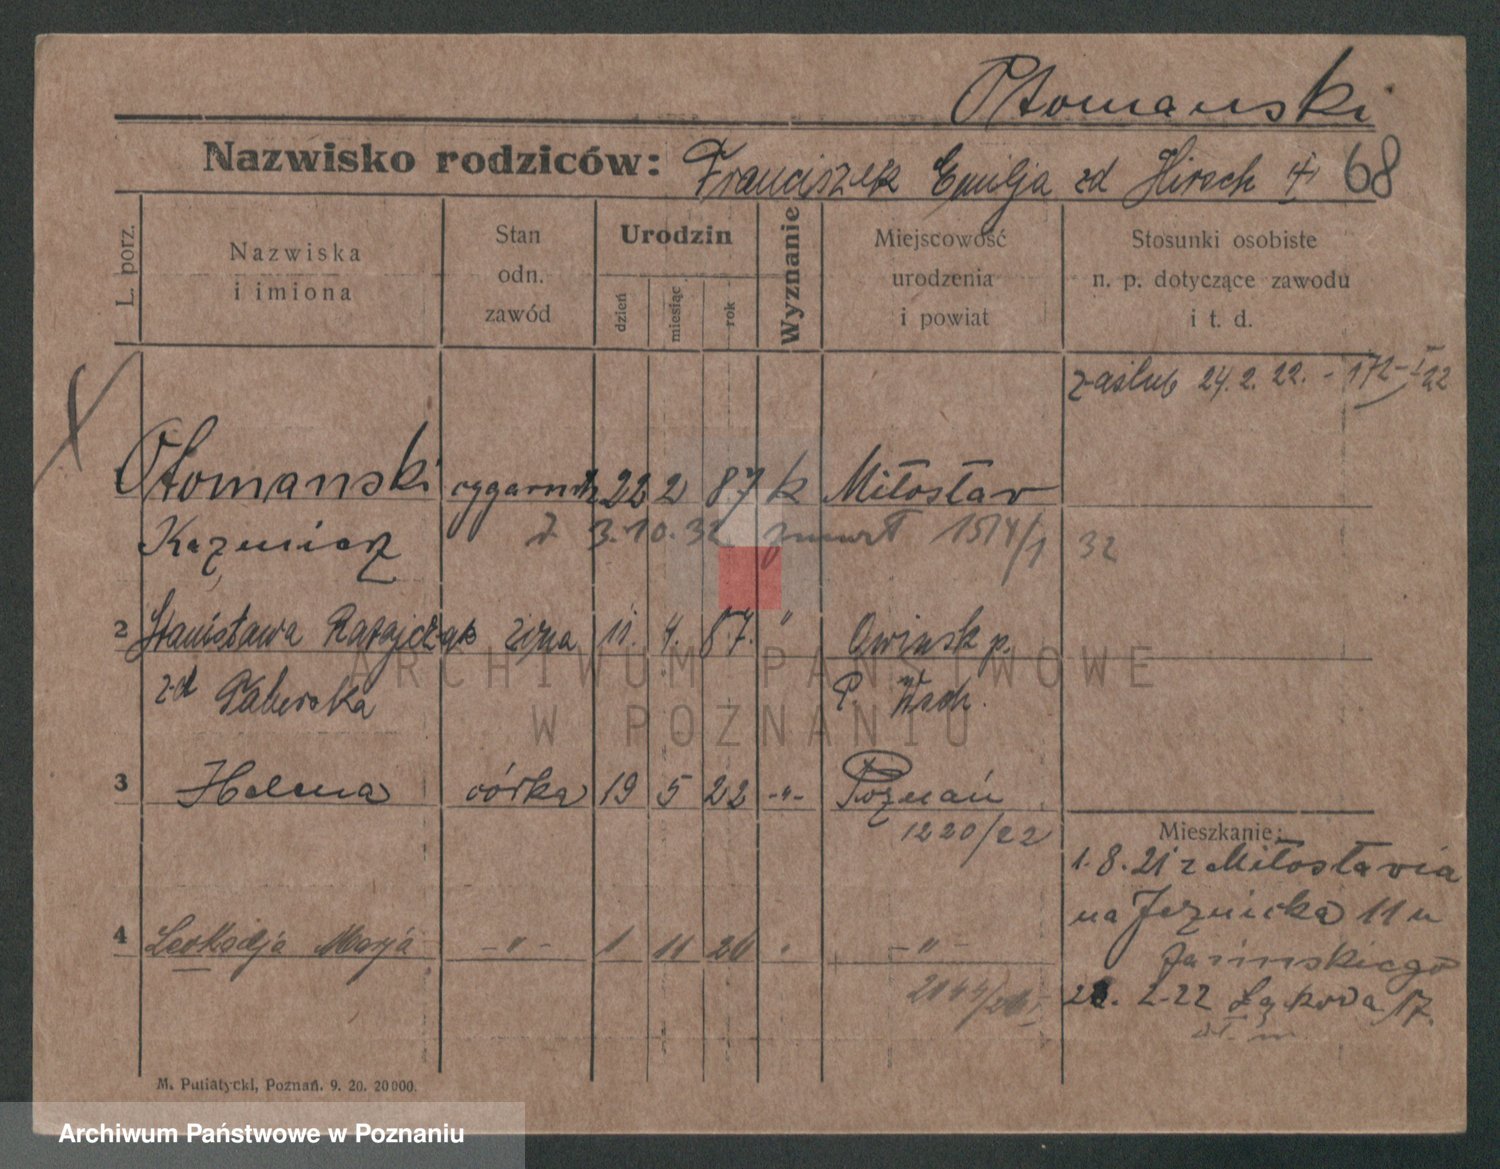 Otomanski
Nazwisko rodziców: Franciszek Emilja zd Hirsch 68
L. porz.
Nazwiska
i imiona
Stan
odn.
zawód
Urodzin
dzień
miesiąc
rok
Wyznanie
Miejscowość
urodzenia
i powiat
Stosunki osobiste
n. p. dotyczące zawodu
i t. d.
zaślub 24.2.22. - 172-I/22
Otomanski cygarnik 22 2 87 k Miłosław
Kazmierz 3.10.32 zmarł 1514/1 32
2 Stanisława Ratajczak żona 11. 4. 87. " Owinsk p.
zd Taberska P. Wsch.
3 Helena córka 19 5 22 -"- Poznań
1220/22
Mieszkanie:
1.8.21 z Miłosławia
na Jeżnicka 11 u
Jasinskiego
4 Leokadja Marja -"- 1 11 26 " -"-
2144/26
28. 2-22 Łąkowa 17.
M. Putiatycki, Poznań. 9. 20. 20000.
ARCHIWUM PAŃSTWOWE
W POZNANIU
Archiwum Państwowe w Poznaniu